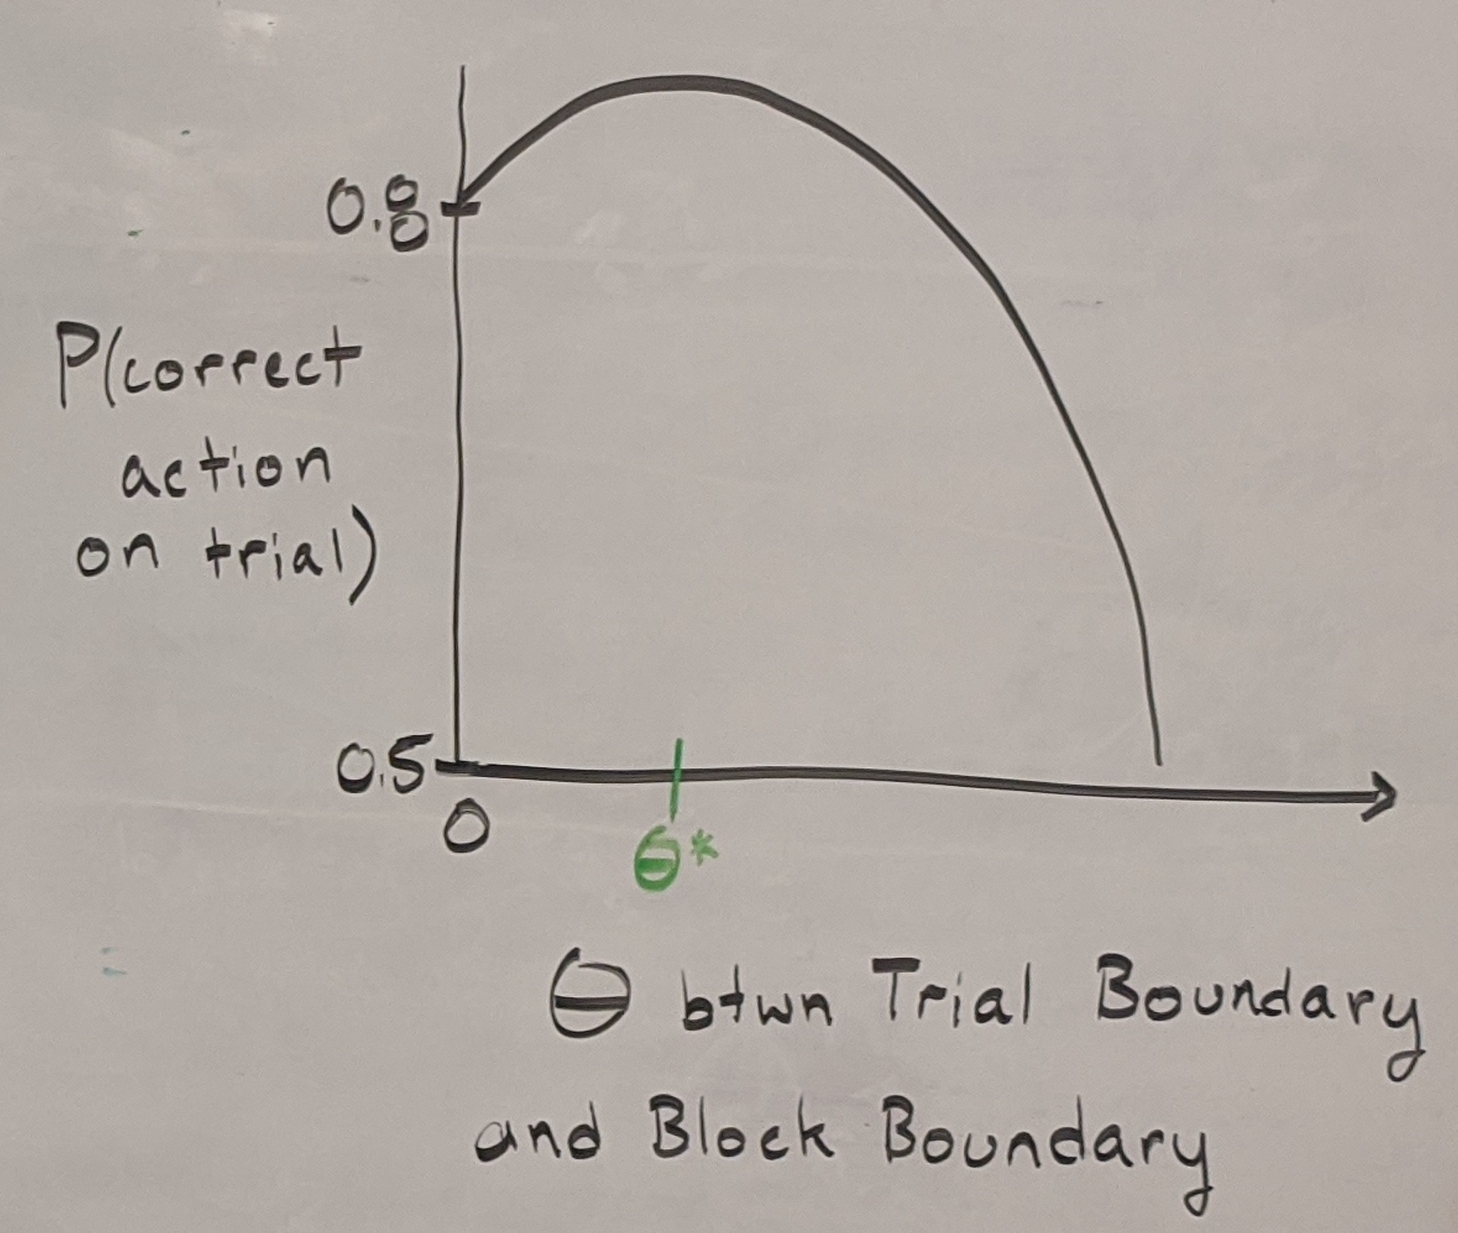 0.8
P(correct
action
on trial)
0.5
0
θ*
θ btwn Trial Boundary
and Block Boundary